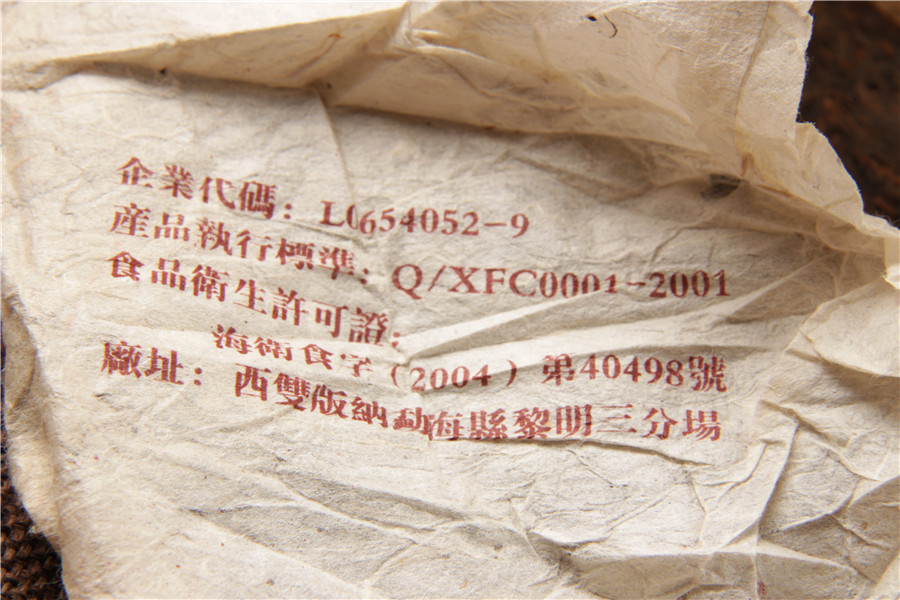 企業代碼：L0654052-9
産品執行標準：Q/XFC0001-2001
食品衛生許可證：
海衛食字（2004）第40498號
廠址：西雙版納勐海縣黎明三分場